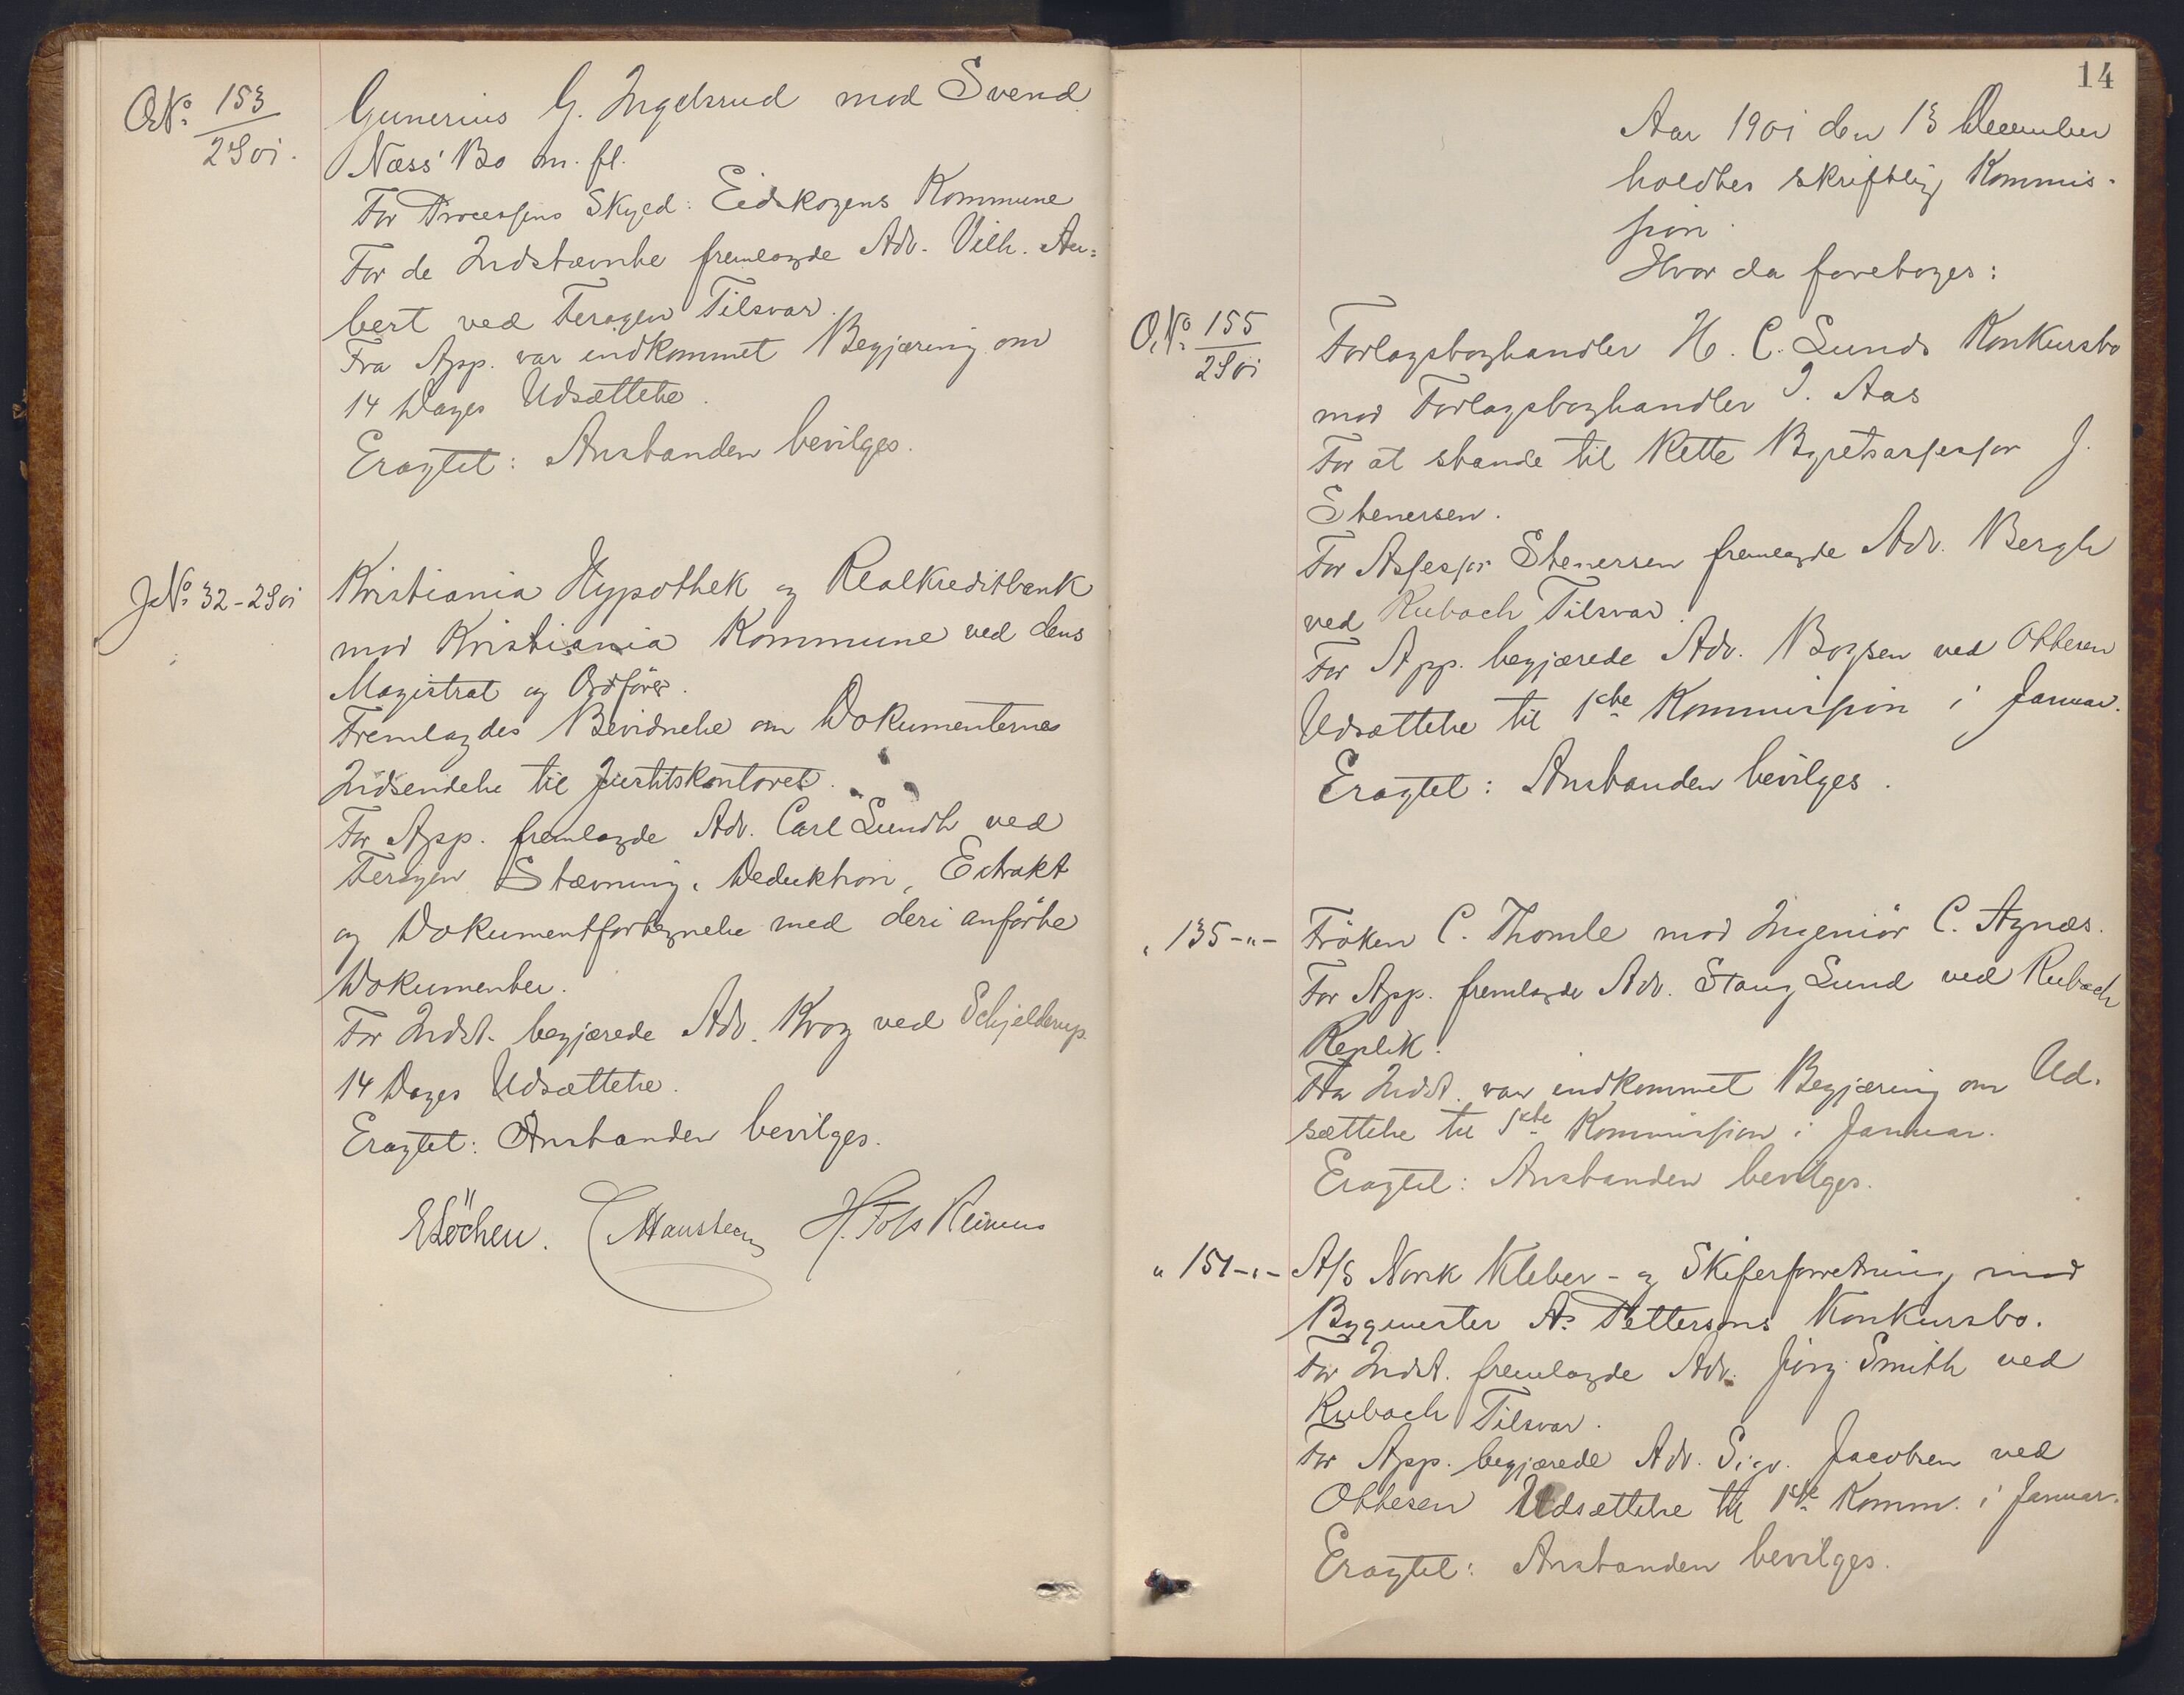 O.No. 153
2S01.
Gunerius G. Ingelsrud mod Svend
Næss' Bo m. fl.
For Processens Skyld: Eidskogens Kommune
For de Indstævnte fremlagde Adv. Vilh. Au-
bert ved Feragen Tilsvar.
Fra App. var indkommet Begjæring om
14 Dages Udsættelse.
Eragtet: Anstanden bevilges.
J.No. 32-2S01
Kristiania Hypothek og Realkreditbank
mod Kristiania Kommune ved dens
Magistrat og Ordfører.
Fremlagdes Bevidnelse om Dokumenternes
Indsendelse til Justitskontoret.
For App. fremlagde Adv. Carl Lundh ved
Feragen Stævning, Deduktion, Extrakt
og Dokumentfortegnelse med deri anførte
Dokumenter.
For Indst. begjærede Adv. Krog ved Schjelderup
14 Dages Udsættelse.
Eragtet: Anstanden bevilges.
E Löchen. C Haustean H. Foss
14
Aar 1901 den 13 December
holdtes skriftlig Kommis-
sion.
Hvor da foretoges:
O.No. 155
2S01
Forlagsboghandler H. C. Lunds Konkursbo
mod Forlagsboghandler I. Aas
For at stande til Rette Byretsassessor J.
Stenersen.
For Assessor Stenersen fremlagde Adv. Bergh
ved Rubach Tilsvar.
For App. begjærede Adv. Boysen ved Ottesen
Udsættelse til 1ste Kommission i Januar.
Eragtet: Anstanden bevilges.
" 135-"-
Frøken C. Thomle mod Ingeniør C. Agnæs.
For App. fremlagde Adv. Stang Lund ved Rubach
Replik.
Fra Indst. var indkommet Begjæring om Ud-
sættelse til 1ste Kommission i Januar.
Eragtet: Anstanden bevilges.
" 151-"-
A/S Norsk Kleber- og Skiferforretning mod
Bygmester A. Pettersens Konkursbo.
For Indst. fremlagde Adv. Jörg. Smith ved
Rubach Tilsvar.
For App. begjærede Adv. Sigv. Jacobsen ved
Ottesen Udsættelse til 1ste Komm. i Januar.
Eragtet: Anstanden bevilges.